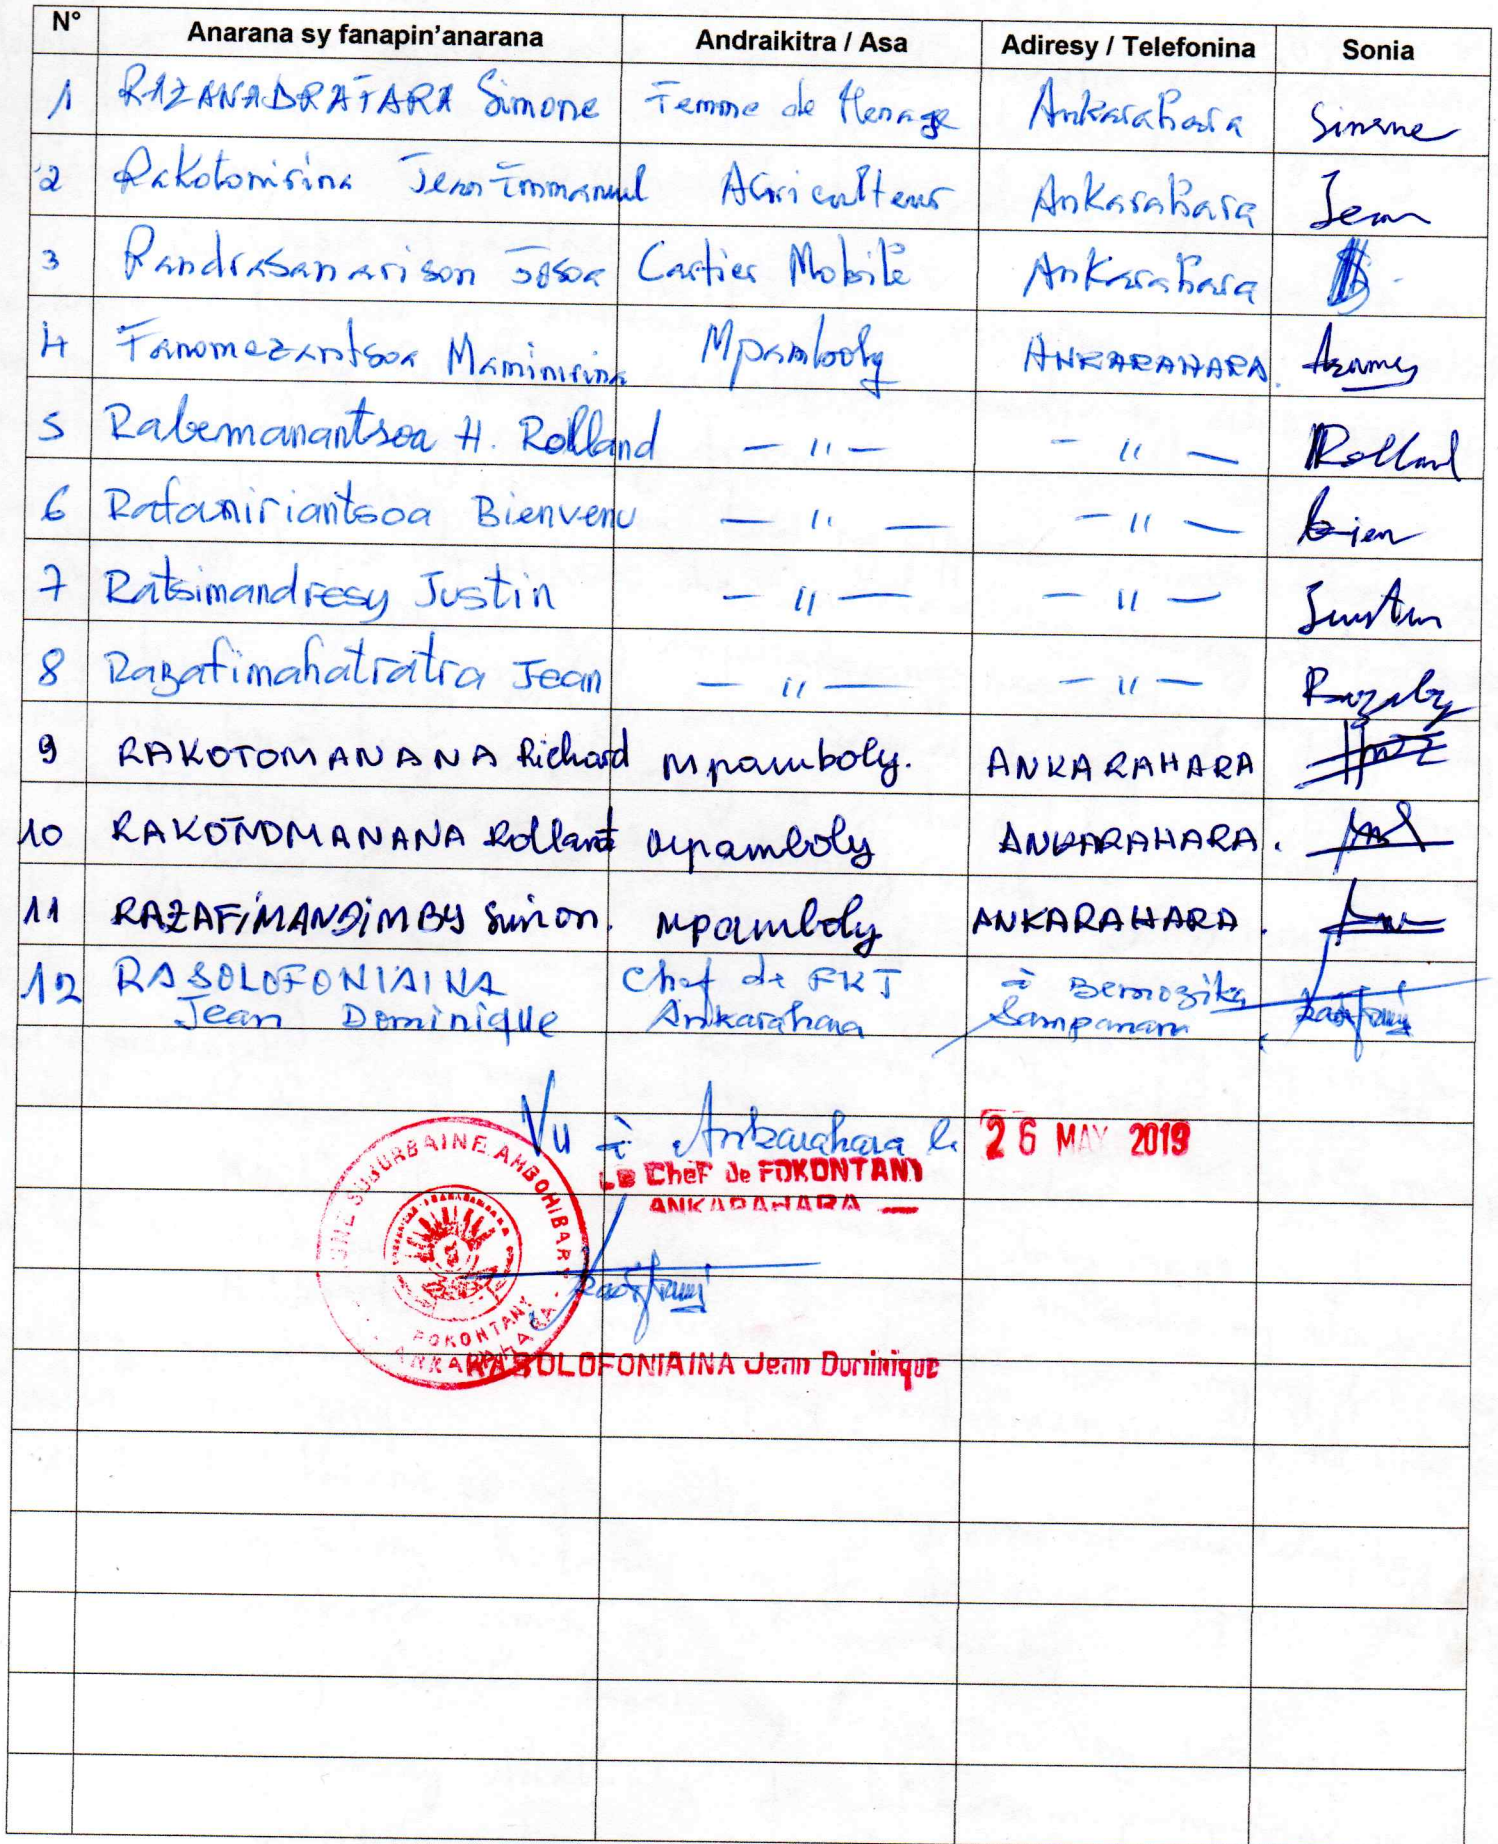 N° Anarana sy fanapin'anarana Andraikitra / Asa Adiresy / Telefonina Sonia
1 RAZANADRAFARA Simone Femme de Menage Ankarahara Simone
2 Rakotonirina Jean Emmanuel Agriculteur Ankarahara Jean
3 Randrasanarison Josoa Cartier Mobile Ankarahara
4 Fanomezantsoa Maminirina Mpamboly ANKARAHARA.
5 Rabemanantsoa H. Rolland — " — — " — Rolland
6 Rafaniriantsoa Bienvenu — " — — " — bien
7 Ratsimandresy Justin — " — — " — Justin
8 Razafimahatratra Jean — " — — " —
9 RAKOTOMANANA Richard Mpamboly. ANKARAHARA
10 RAKOTOMANANA Rolland Mpamboly ANKARAHARA.
11 RAZAFIMANDIMBY Simon. Mpamboly ANKARAHARA.
12 RASOLOFONIAINA Chef de FKT à
Jean Dominique Ankarahara
Vu à Ankarahara le 26 MAY 2019
Le Chef de FOKONTANY
ANKARAHARA —
SUBURBAINE AMBOHIBARY
FOKONTANY
ANKARAHARA
RASOLOFONIAINA Jean Dominique